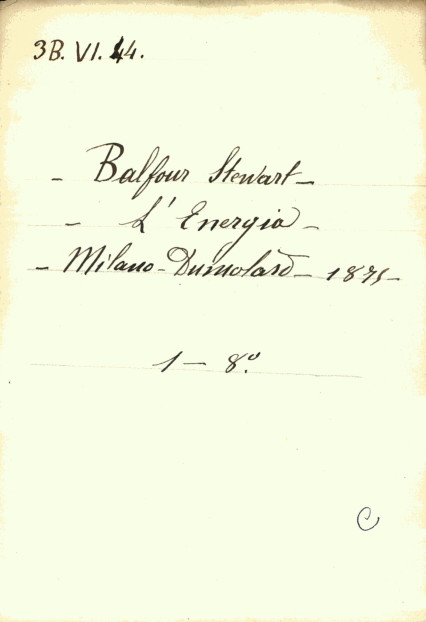 3B. VI. 44.
- Balfour Stewart -
- L' Energia -
- Milano - Dumolard - 1875 -
1 - 8.º
C